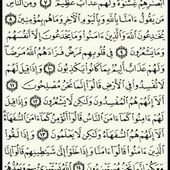 أَبْصَٰرِهِمْ غِشَٰوَةٌ وَلَهُمْ عَذَابٌ عَظِيمٌ ٧ وَمِنَ النَّاسِ
مَن يَقُولُ ءَامَنَّا بِاللَّهِ وَبِالْيَوْمِ الْءَاخِرِ وَمَا هُم بِمُؤْمِنِينَ
٨ يُخَٰدِعُونَ اللَّهَ وَالَّذِينَ ءَامَنُوا وَمَا يَخْدَعُونَ إِلَّا أَنفُسَهُمْ
وَمَا يَشْعُرُونَ ٩ فِي قُلُوبِهِم مَّرَضٌ فَزَادَهُمُ اللَّهُ مَرَضًا
وَلَهُمْ عَذَابٌ أَلِيمٌ بِمَا كَانُوا يَكْذِبُونَ ١٠ وَإِذَا قِيلَ لَهُمْ
لَا تُفْسِدُوا فِي الْأَرْضِ قَالُوا إِنَّمَا نَحْنُ مُصْلِحُونَ ١١
أَلَا إِنَّهُمْ هُمُ الْمُفْسِدُونَ وَلَٰكِن لَّا يَشْعُرُونَ ١٢ وَإِذَا قِيلَ
لَهُمْ ءَامِنُوا كَمَا ءَامَنَ النَّاسُ قَالُوا أَنُؤْمِنُ كَمَا ءَامَنَ السُّفَهَاءُ
أَلَا إِنَّهُمْ هُمُ السُّفَهَاءُ وَلَٰكِن لَّا يَعْلَمُونَ ١٣ وَإِذَا لَقُوا
الَّذِينَ ءَامَنُوا قَالُوا ءَامَنَّا وَإِذَا خَلَوْا إِلَىٰ شَيَٰطِينِهِمْ قَالُوا